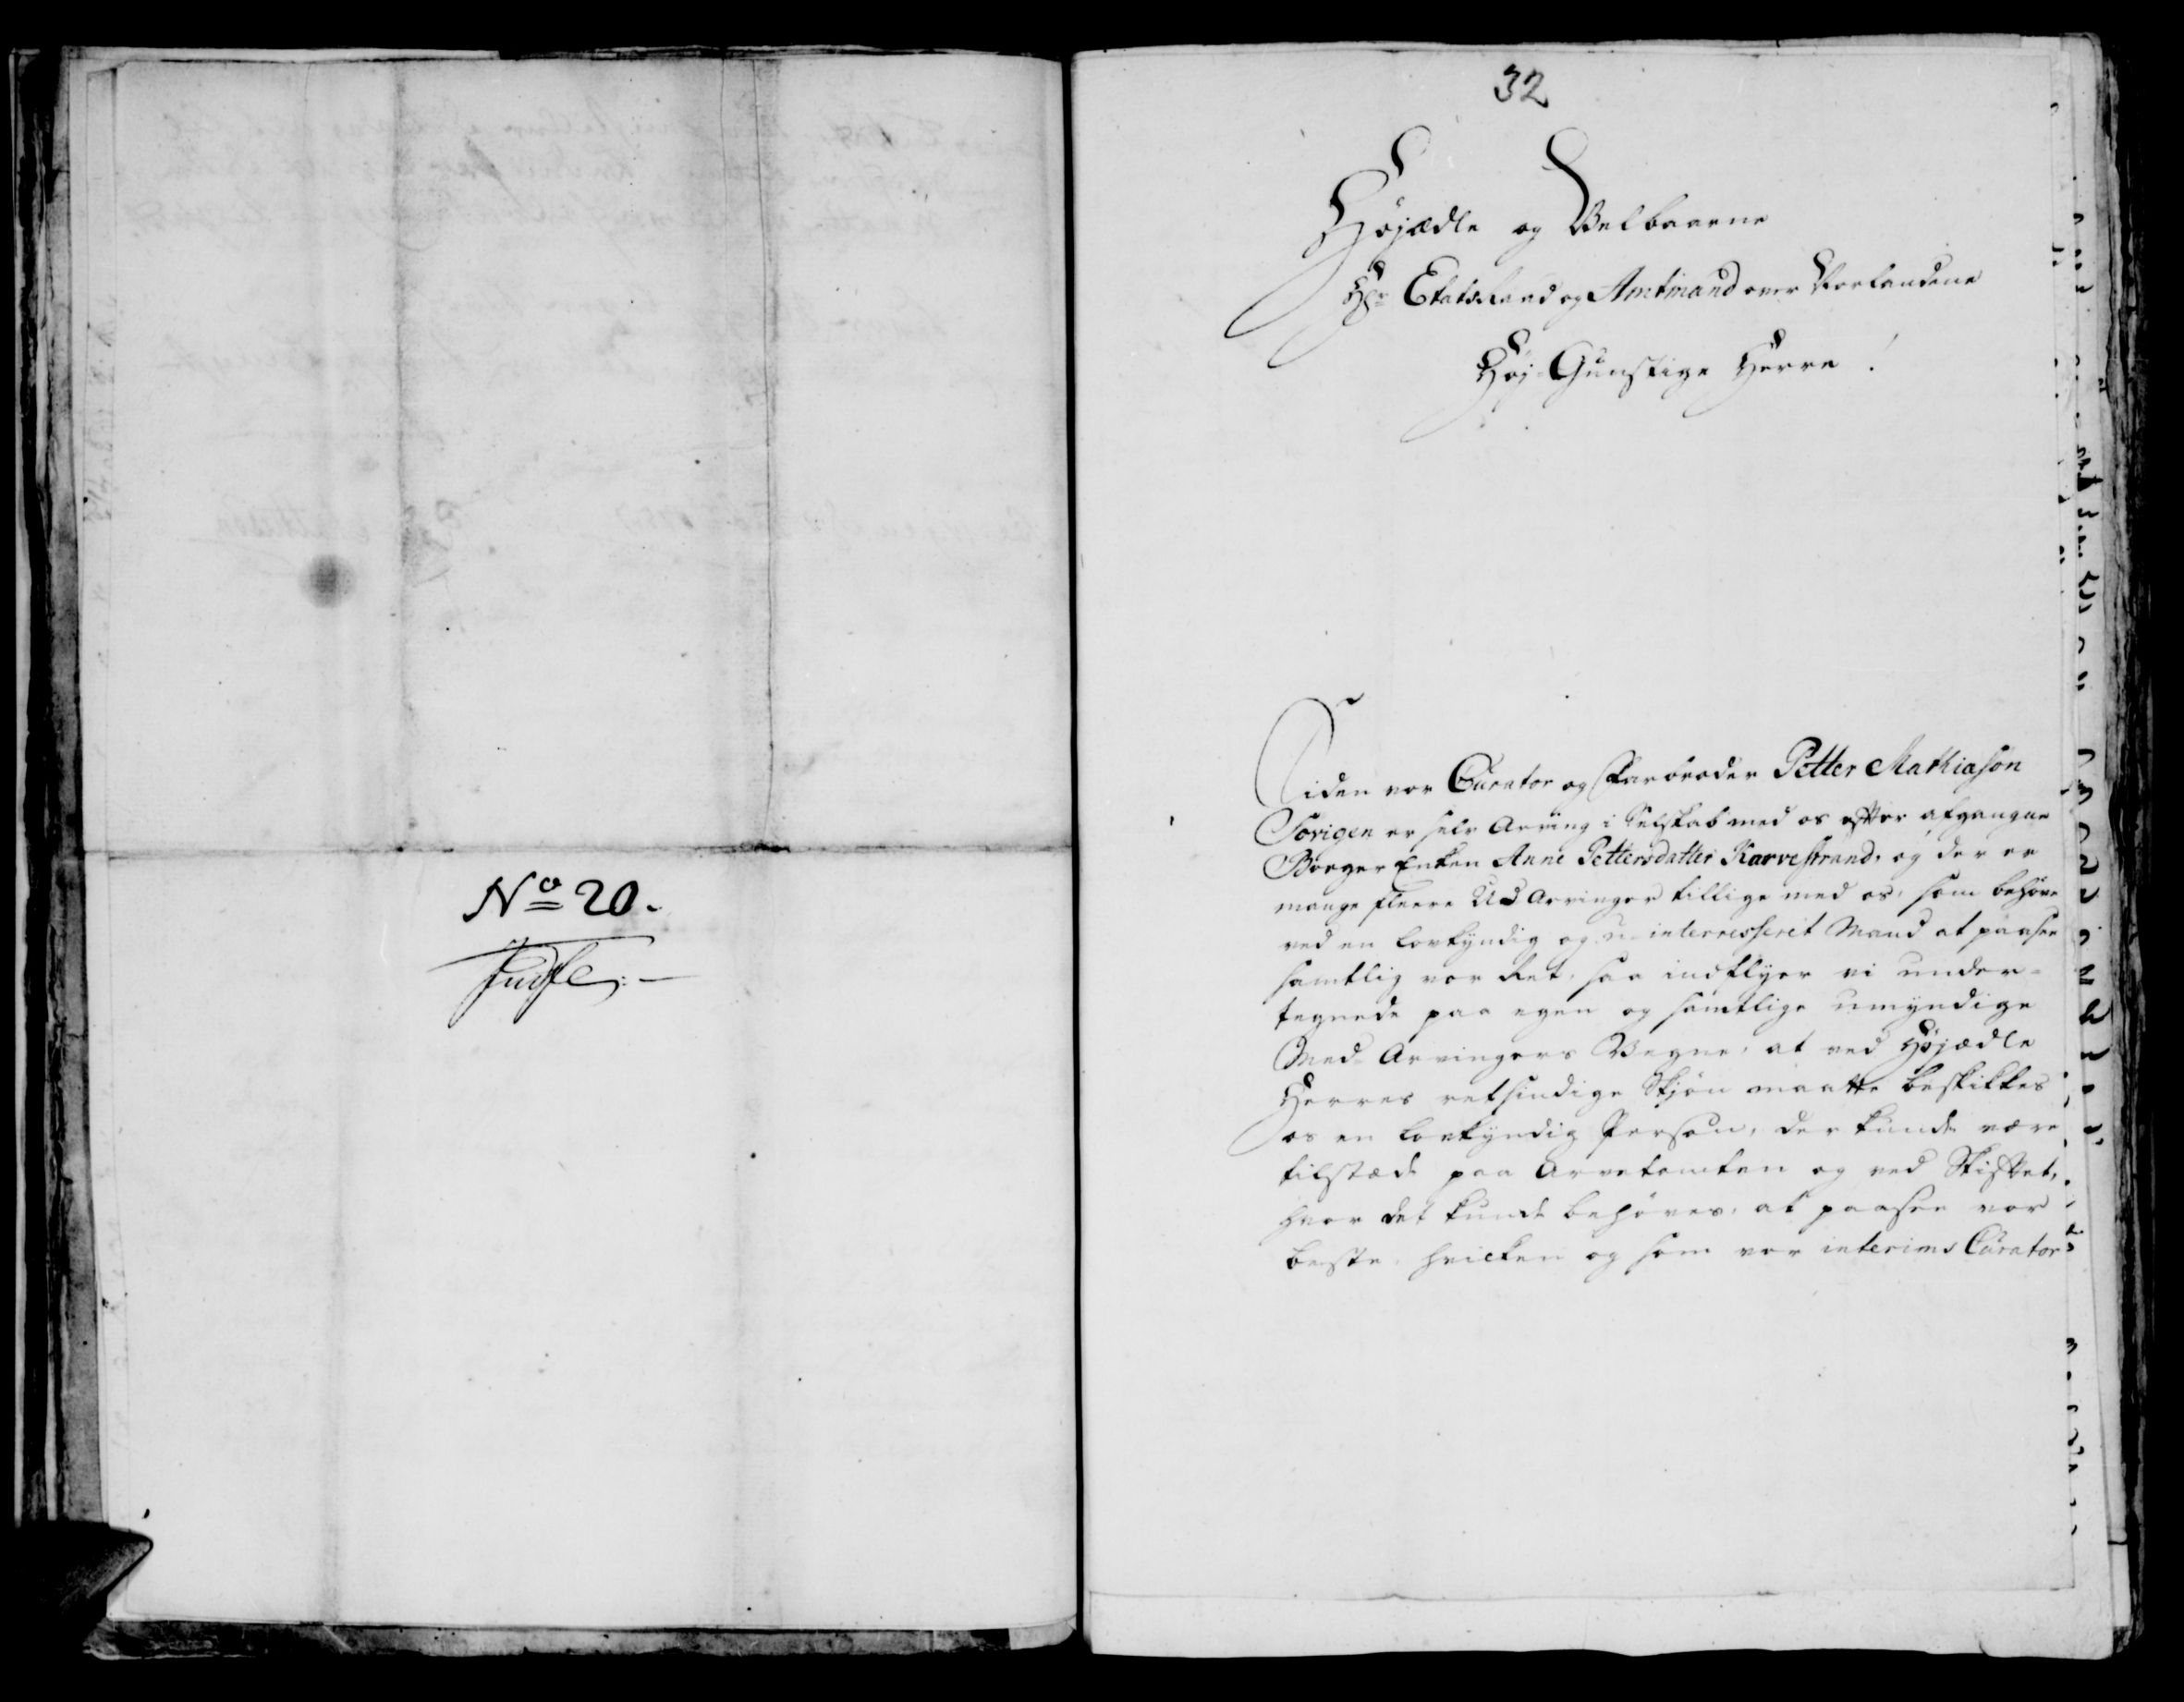 No 20.
32
Højædle og Velbaarne
Hr Etatsraad og Amtmand over Norlandene
Høj-Gunstige Herre!
Siden vor Curator og Farbroder Petter Mathiasøn
Torigen er selv Arving i Selskab med os efter afgangne
Borger Enken Anne Pettersdatter Karvestrand, og der er
mange fleere Ud Arvinger tillige med os, som behøve
ved en lovkyndig og u-interresseret Mand at paasee
samtlig vor Ret, saa indflyer vi under-
tegnede paa egen og samtlige umyndige
Med-Arvingers Vegne, at ved Højædle
Herres retsindige Skjøn maatte beskikkes
os en lovkyndig Person, der kunde være
tilstæde paa Arvetomten og ved Skiftet,
hvor det kunde behøves, at paasee vor
beste, hvilken og som vor interims Curator